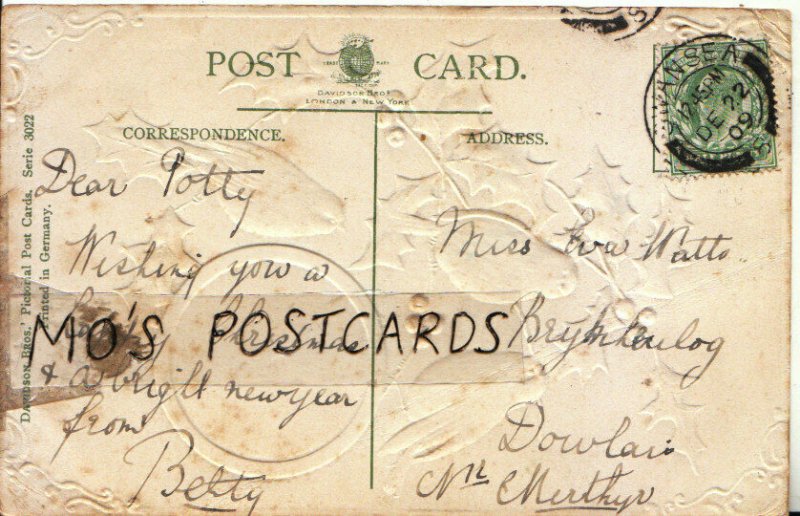 POST CARD.
TRADE MARK
DAVIDSON BROS.
LONDON & NEW YORK
CORRESPONDENCE.
ADDRESS.
DAVIDSON BROS.' Pictorial Post Cards. Serie 3022
Printed in Germany.
SWANSEA
45PM
DE 22
09
Dear Potty
Wishing you a
Christmas
& a bright new year
from
Betty
MO'S POSTCARDS
Miss Eva Watts
Dowlais
Nr Merthyr